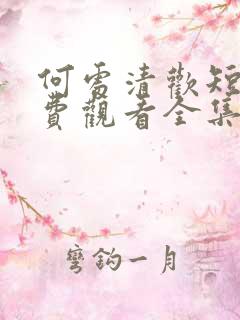 何需清歡短
費觀看全集
彎鈎一月